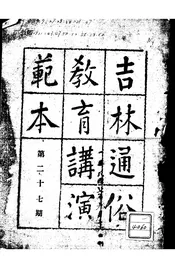 吉林通俗
教育講演
範本
第二十七期